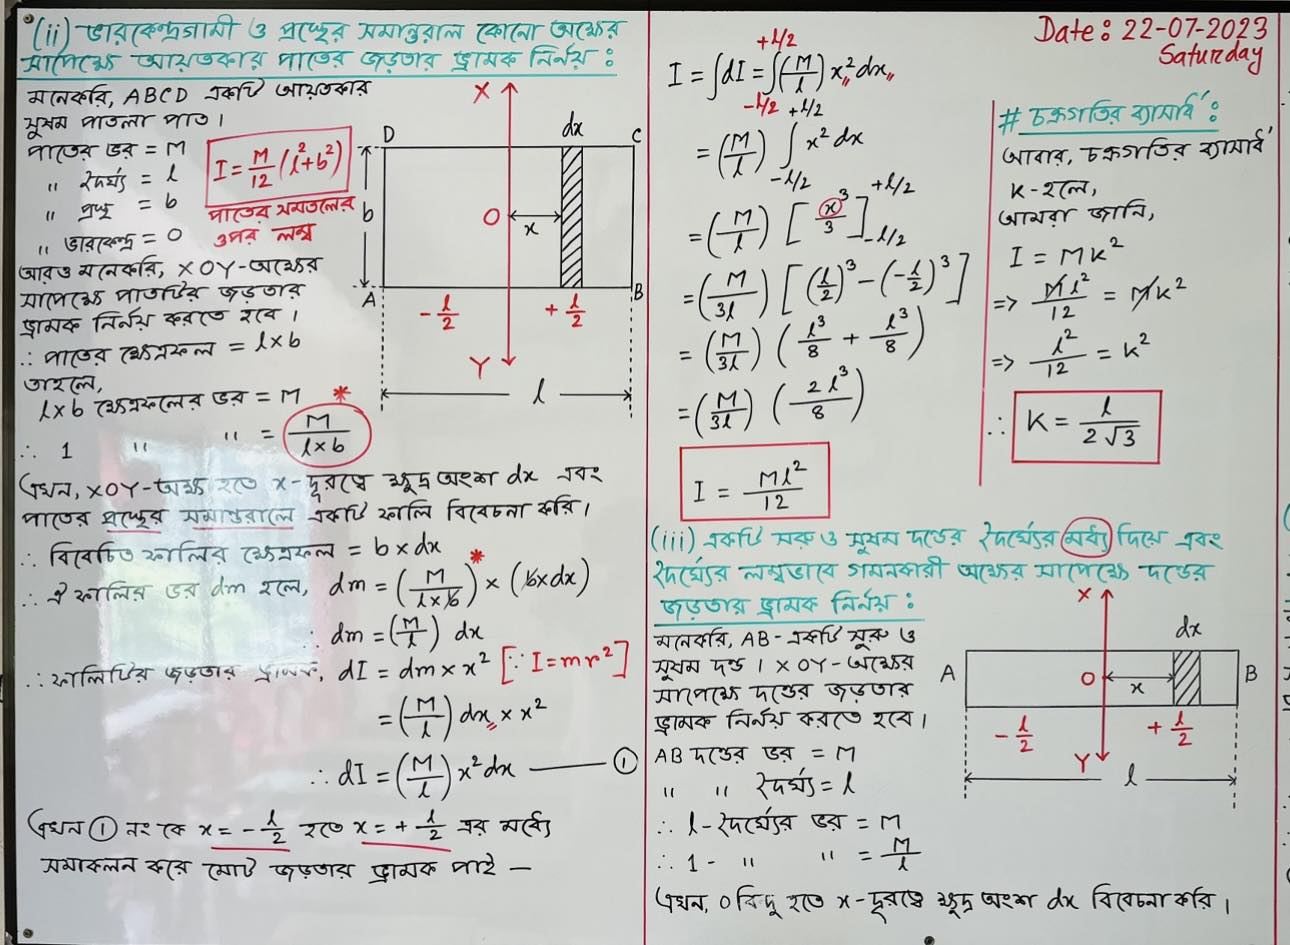 (ii) ভারকেন্দ্রগামী ও প্রস্থের সমান্তরাল কোনো অক্ষের
সাপেক্ষে আয়তকার পাতের জড়তার ভ্রামক নির্নয় :
মনেকরি, ABCD একটি আয়তকার
সুষম পাতলা পাত।
পাতের ভর = M
" দৈর্ঘ্য = l
" প্রস্থ = b
" ভারকেন্দ্র = O
I = M/12 (l²+b²)
পাতের সমতলের
ওপর লম্ব
আরও মনেকরি, XOY-অক্ষের
সাপেক্ষে পাতটির জড়তার
ভ্রামক নির্নয় করতে হবে।
∴ পাতের ক্ষেত্রফল = l×b
তাহলে,
l×b ক্ষেত্রফলের ভর = M *
∴ 1 " " = M/(l×b)
X
D
dx
C
b
O
x
A
-l/2
+l/2
B
Y
l
এখন, XOY-অক্ষ হতে x-দূরত্বে ক্ষুদ্র অংশ dx এবং
পাতের প্রস্থের সমান্তরালে একটি ফালি বিবেচনা করি।
∴ বিবেচিত ফালির ক্ষেত্রফল = b×dx
∴ ঐ ফালির ভর dm হলে, dm = (M/(l×b))* × (b×dx)
∴ dm = (M/l) dx
∴ ফালিটির জড়তার ভ্রামক, dI = dm × x² [∵ I=mr²]
= (M/l) dx × x²
∴ dI = (M/l) x²dx —— ①
এখন ① নং কে x = -l/2 হতে x = +l/2 এর মধ্যে
সমাকলন করে মোট জড়তার ভ্রামক পাই —
I = ∫dI = ∫_{-l/2}^{+l/2} (M/l) x² dx
= (M/l) ∫_{-l/2}^{+l/2} x² dx
= (M/l) [x³/3]_{-l/2}^{+l/2}
= (M/3l) [(l/2)³ - (-l/2)³]
= (M/3l) (l³/8 + l³/8)
= (M/3l) (2l³/8)
I = Ml²/12
Date: 22-07-2023
Saturday
# চক্রগতির ব্যাসার্ধ :
আবার, চক্রগতির ব্যাসার্ধ
K-হলে,
আমরা জানি,
I = MK²
=> Ml²/12 = MK²
=> l²/12 = K²
∴ K = l/2√3
(iii) একটি সরু ও সুষম দন্ডের দৈর্ঘ্যের মধ্য দিয়ে এবং
দৈর্ঘ্যের লম্বভাবে গমনকারী অক্ষের সাপেক্ষে দন্ডের
জড়তার ভ্রামক নির্নয় :
মনেকরি, AB-একটি সুরু ও
সুষম দন্ড। XOY-অক্ষের
সাপেক্ষে দন্ডের জড়তার
ভ্রামক নির্নয় করতে হবে।
AB দন্ডের ভর = M
" " দৈর্ঘ্য = l
∴ l-দৈর্ঘ্যের ভর = M
∴ 1- " " = M/l
X
dx
A
O
x
B
-l/2
+l/2
Y
l
এখন, O বিন্দু হতে x-দূরত্বে ক্ষুদ্র অংশ dx বিবেচনা করি।